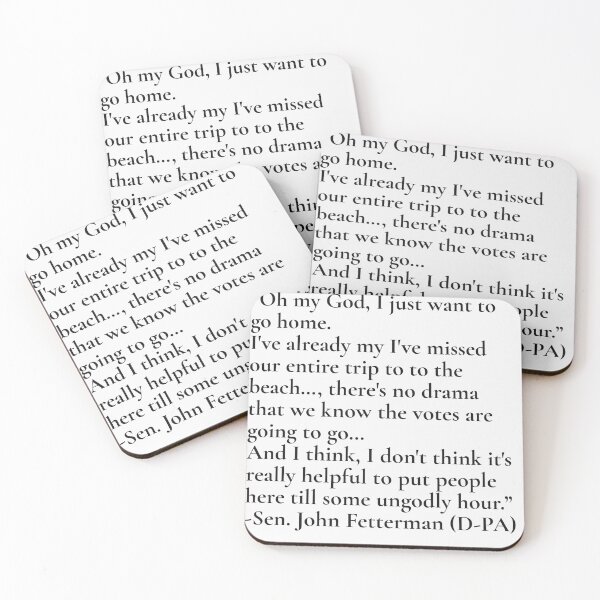 Oh my God, I just want to
go home.
I've already my I've missed
our entire trip to to the
beach..., there's no drama
that we know the votes
Oh my God, I just want to
go home.
I've already my I've missed
our entire trip to to the
beach..., there's no drama
that we know the votes are
going to go...
And I think, I don't think it's
really helpful to put people
hour.”
(D-PA)
Oh my God, I just want to
go home.
I've already my I've missed
our entire trip to to the
beach..., there's no drama
that we know the votes are
going to go...
And I think, I don't
really helpful to put
here till some
-Sen. John
Oh my God, I just want to
go home.
I've already my I've missed
our entire trip to to the
beach..., there's no drama
that we know the votes are
going to go...
And I think, I don't think it's
really helpful to put people
here till some ungodly hour.”
-Sen. John Fetterman (D-PA)